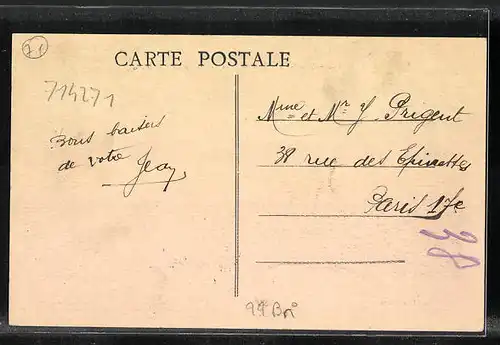 71
CARTE POSTALE
714271
Bons baisers
de votre
Jean
Mme et Mr J. Prigent
38 rue des Epinettes
Paris 17e
38